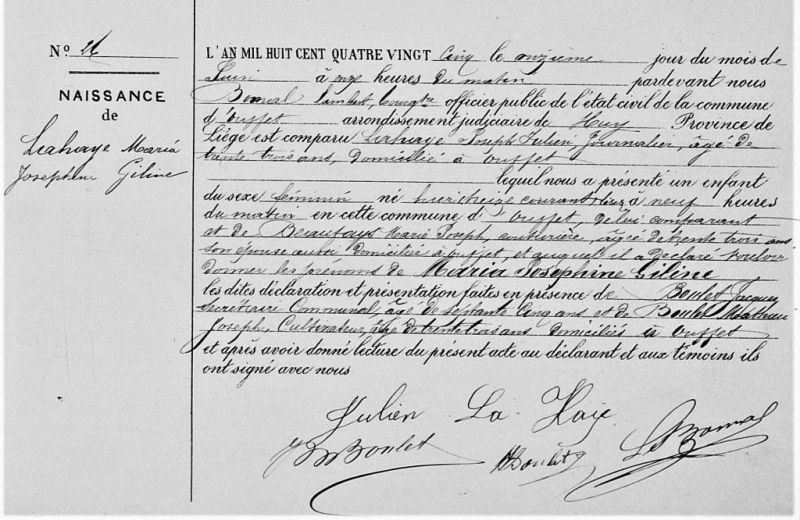 N° 21
NAISSANCE
de
Lahaye Maria
Josephine Giline
L'AN MIL HUIT CENT QUATRE VINGT Cinq le onzième jour du mois de
Juin à onze heures Du matin pardevant nous
Bonnal Lambert, officier public de l'état civil de la commune
d'Ouffet arrondissement judiciaire de Huy Province de
Liége est comparu Lahaye Joseph Julien, Journalier, âgé de
trente trois ans, domicilié à Ouffet
lequel nous a présenté un enfant
du sexe féminin né huit courant à neuf heures
du matin en cette commune d'Ouffet, de lui comparant
et de Beaufays Marie Joseph, couturière, âgée de trente trois ans
son épouse aussi domiciliée à Ouffet, et auquel il a déclaré vouloir
donner les prénoms de Maria Joséphine Giline
les dites déclaration et présentation faites en présence de Boulet Jacques
Secrétaire Communal, âgé de septante Cinq ans et de Boulet Mathieu
Joseph, Cultivateur, âgé de trente trois ans domiciliés à Ouffet
et après avoir donné lecture du présent acte au déclarant et aux témoins ils
ont signé avec nous
Julien La Haie
Boulet Boulet L Bonnal